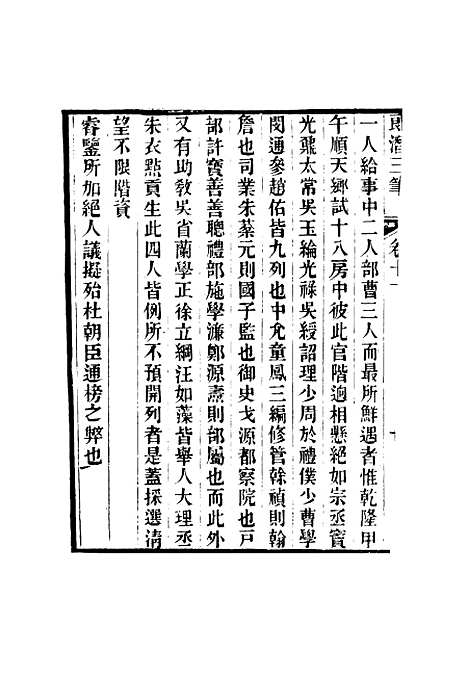 郎潛三筆 卷十一 十
一人給事中二人部曹三人而最所鮮遇者惟乾隆甲
午順天鄉試十八房中彼此官階迥相懸絕如宗丞竇
光鼐太常吳玉綸光祿吳綬詔理少周於禮僕少曹學
閔通參趙佑皆九列也中允童鳳三編修管榦禎則翰
詹也司業朱棻元則國子監也御史戈源都察院也戸
部許寶善善聰禮部施學濂鄭源燾則部屬也而此外
又有助敎吳省蘭學正徐立綱汪如藻皆舉人大理丞
朱衣點貢生此四人皆例所不預開列者是蓋採選淸
望不限階資
睿鑒所加絕人議擬殆杜朝臣通榜之弊也